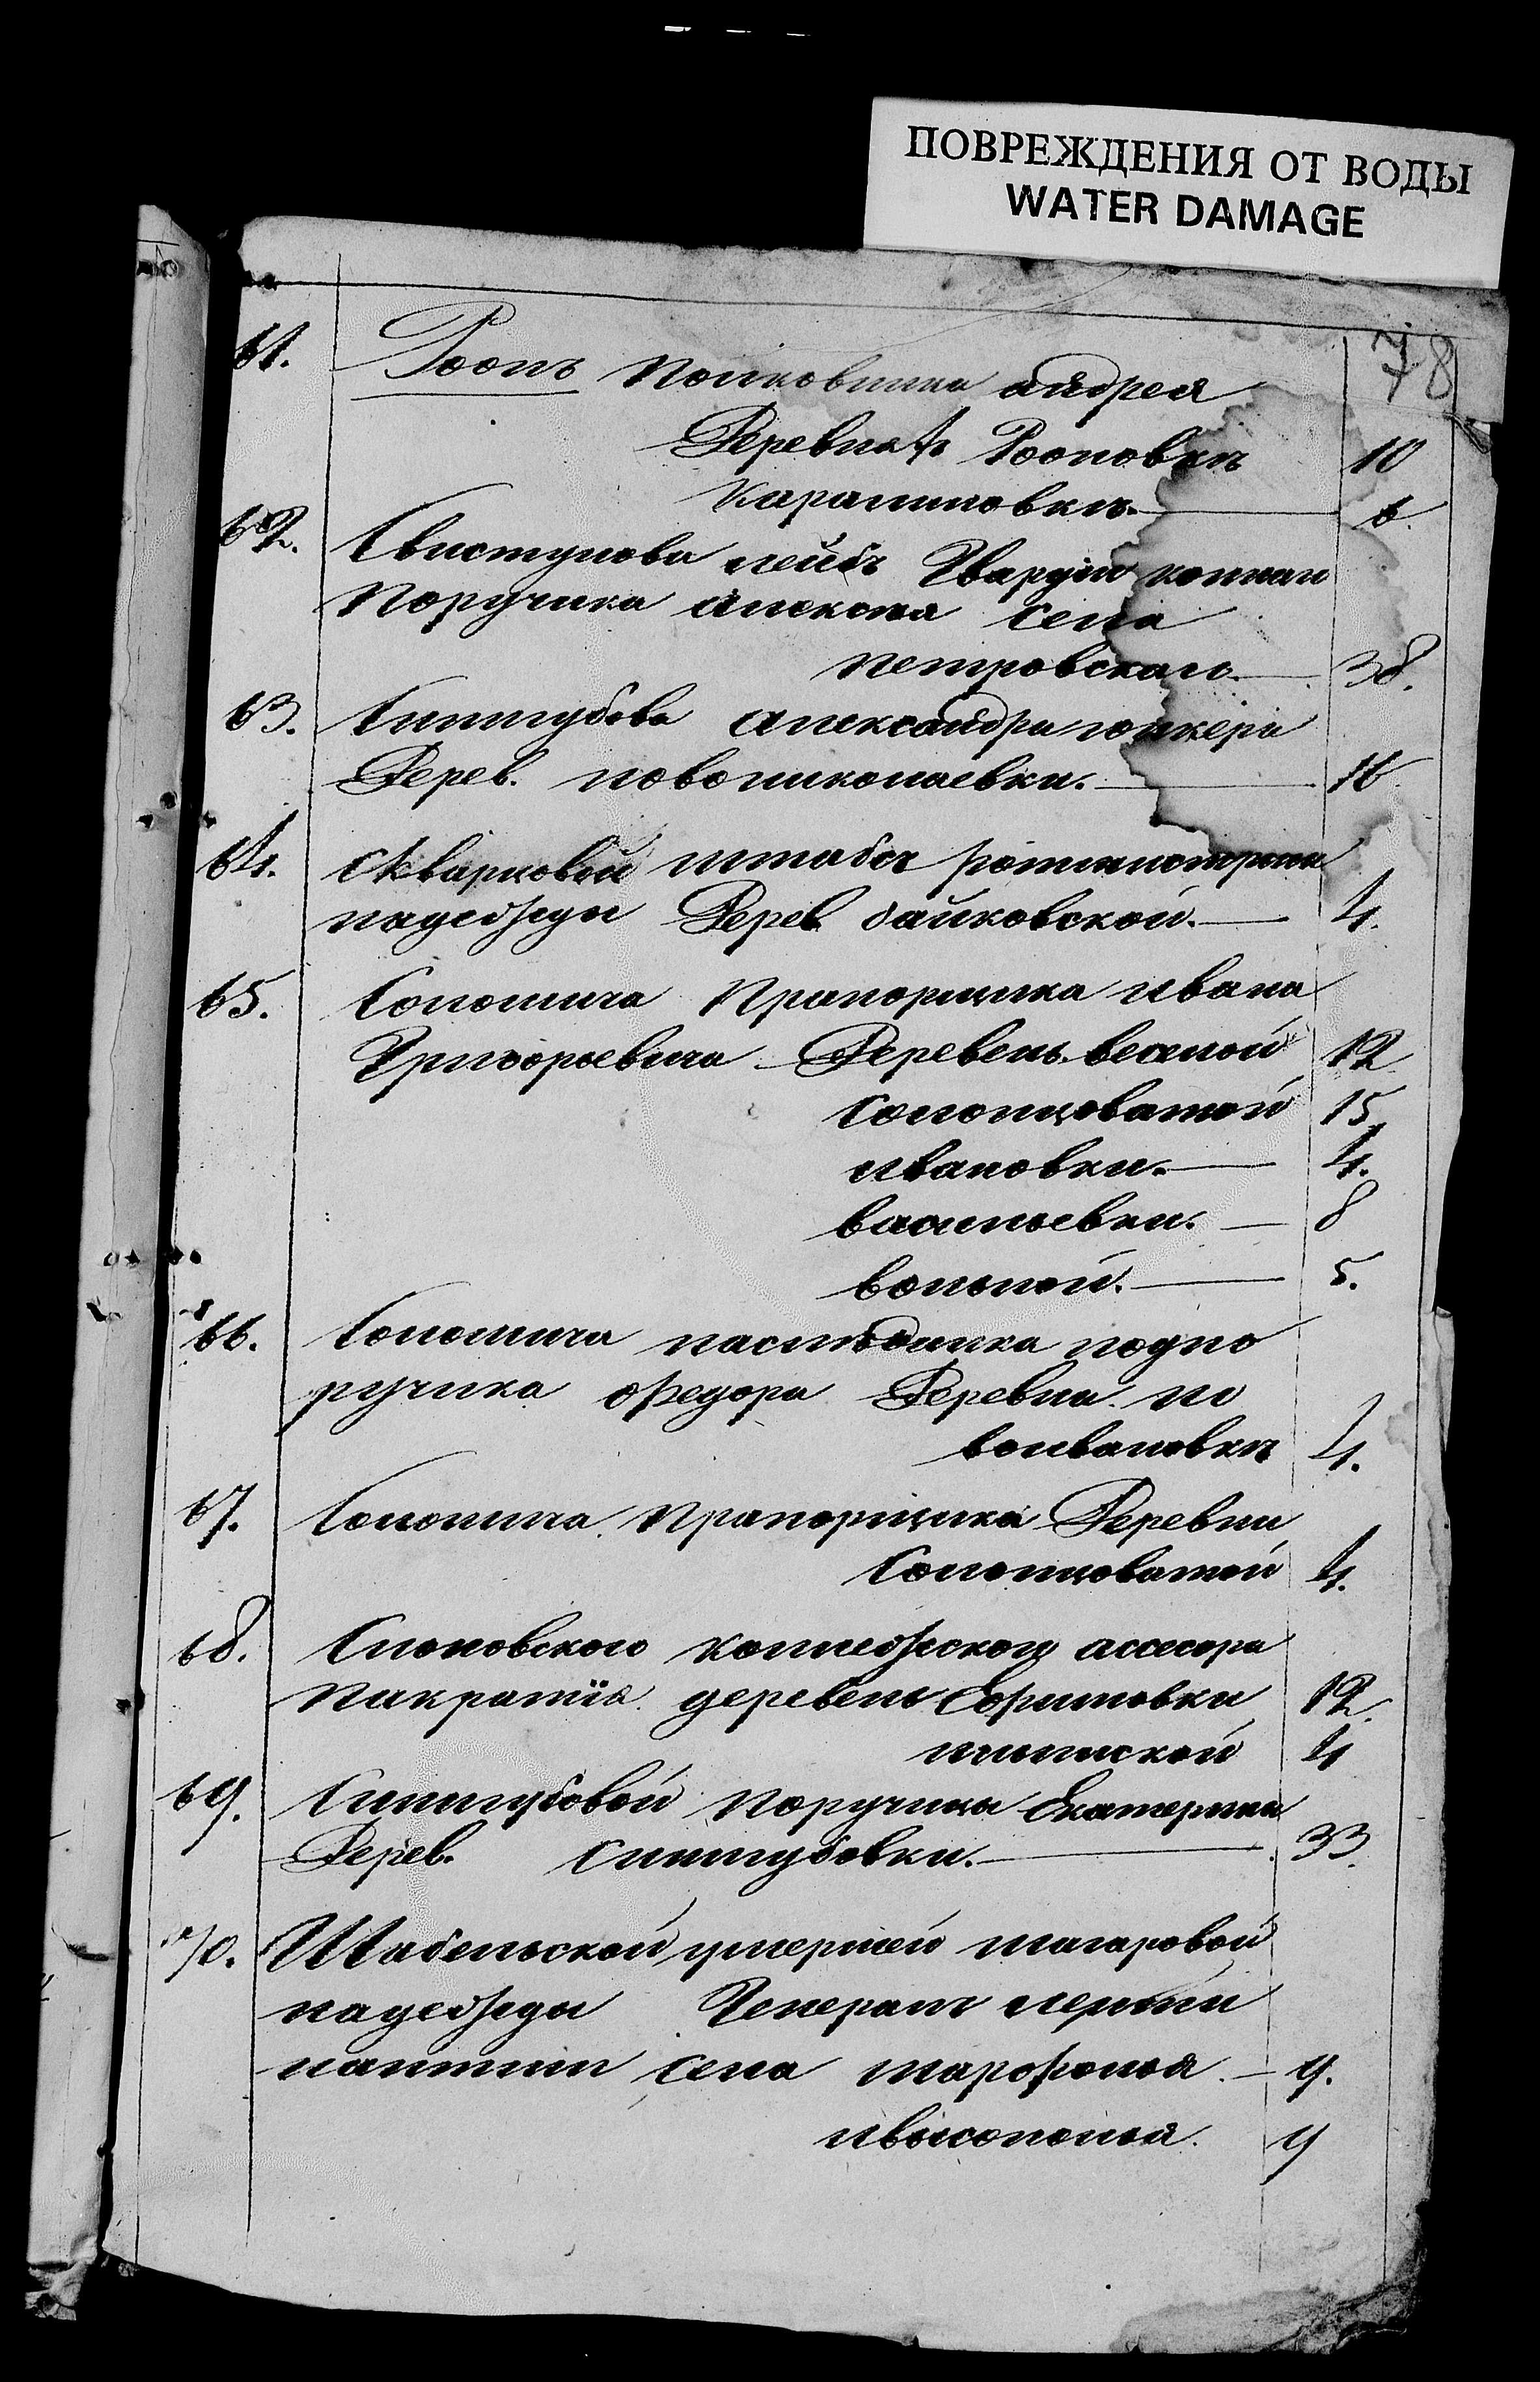 ПОВРЕЖДЕНИЯ ОТ ВОДЫ
WATER DAMAGE
78
61. Роопъ Полковника андрея
Деревнѣ Рооповкѣ 10
Каралиновкѣ. 6.
62. Свистунова лейбъ Гвардіи коннаго
Поручика алексѣя Села
Петровскаго. 38.
63. Синегубова александра юнкера
Дерев. новониколаевки. 16.
64. Скварковой штабсъ ротмистрши
надежды Дерев. байковской. 4.
65. Соломича Прапорщика ивана
Григорьевича Деревень веселой 12
Солонцоватой 15
ивановки. 4.
васильевки. 8
вольной. 5.
66. Соломича наслѣдника подпо
ручика Федора Деревни но
воивановкѣ 4.
67. Соломича Прапорщика Деревни
Солонцоватой 4.
68. Снаковского Коллежского ассесора
Панкратія деревень Ефимовки 12.
4
69. Синегубовой Поручицы Екатерины
Дерев. Синегубовки. 33.
70. Шабельской умершей
надежды Генералъ лейти
нантши Села 9.
9